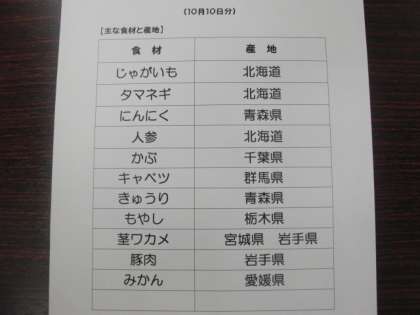 (10月10日分)
【主な食材と産地】
食材 産地
じゃがいも 北海道
タマネギ 北海道
にんにく 青森県
人参 北海道
かぶ 千葉県
キャベツ 群馬県
きゅうり 青森県
もやし 栃木県
茎ワカメ 宮城県 岩手県
豚肉 岩手県
みかん 愛媛県